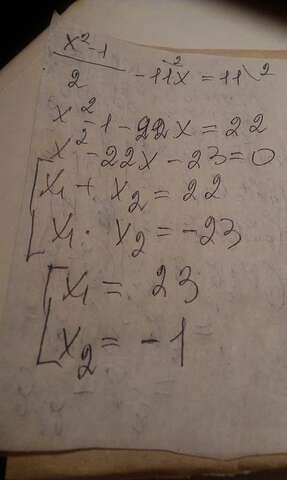 x²-1/2 -11x² = 11\2
x²-1-22x = 22
x²-22x-23=0
[x₁ + x₂ = 22
[x₁ · x₂ = -23
[x₁ = 23
[x₂ = -1